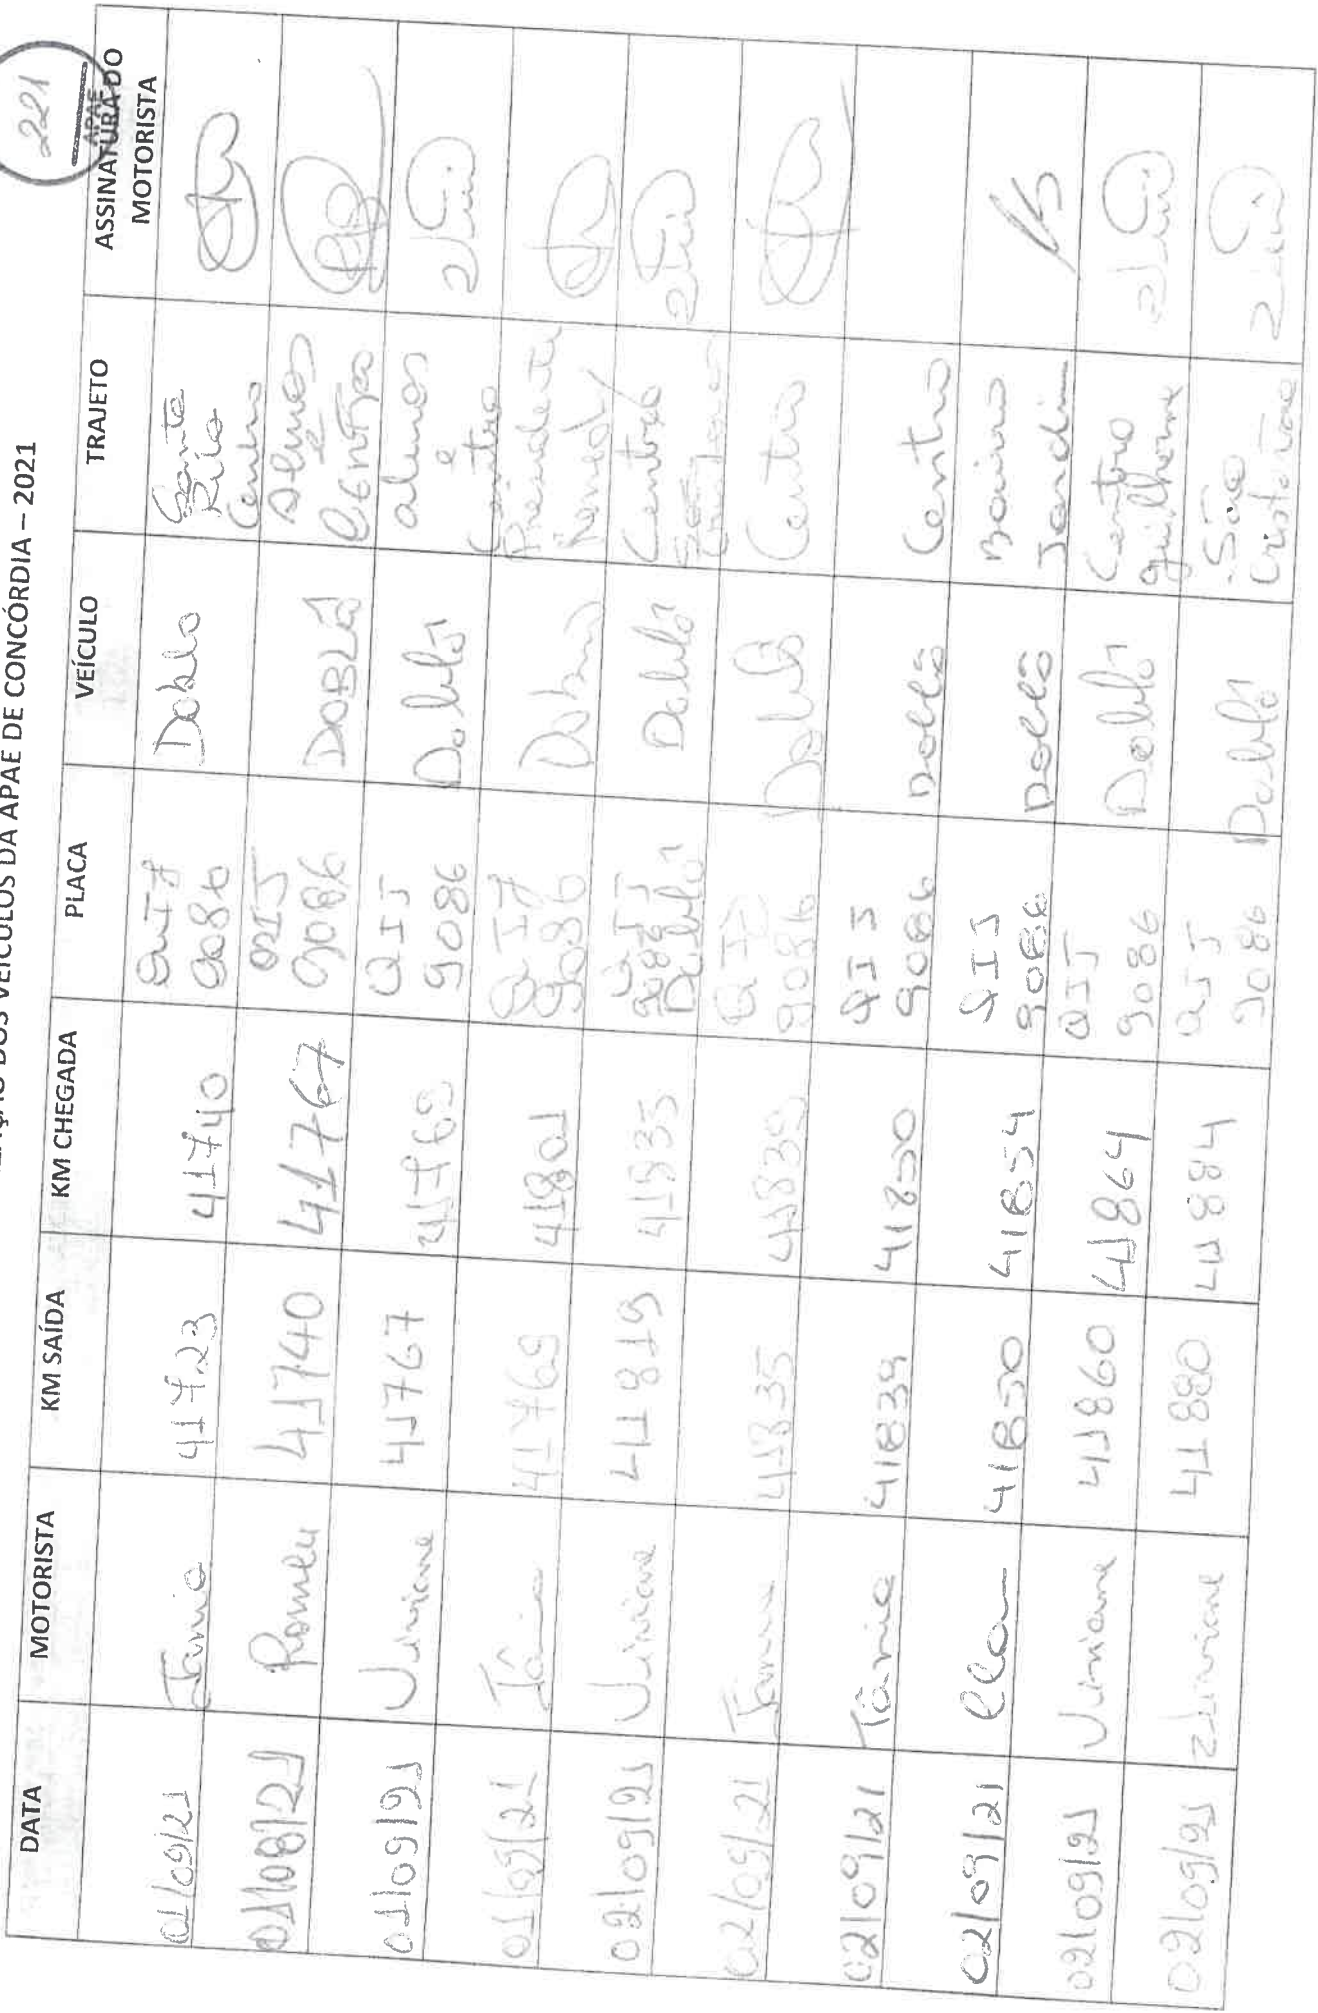 DOS VEÍCULOS DA APAE DE CONCÓRDIA – 2021
221
APAE
DATA MOTORISTA KM SAÍDA KM CHEGADA PLACA VEÍCULO TRAJETO ASSINATURA DO MOTORISTA
01/09/21 Tania 41723 41740 9086 Doblo Santa Rita Centro
01/08/21 Romeu 41740 41767 QIJ 9086 DOBLÔ Alunos e Centro
01/09/21 Viviane 41767 41769 QIJ 9086 Doblô alunos e Centro
01/09/21 Tânia 41769 41801 9086 Presidente Kennedy
02/09/21 Viviane 41819 41835 QIJ 9086 Doblô Doblô Centro São Cristovão
02/09/21 Tania 41835 41839 QIJ 9086 Doblô Centro
02/09/21 Tânia 41839 41850 QIJ 9086 Doblô Centro
02/09/21 41850 41854 QIJ 9086 Doblô Bairro Jardim
02/09/21 Viviane 41860 41864 QIJ 9086 Doblô Centro Guilherme
02/09/21 Viviane 41880 41884 QIJ 9086 Doblô São Cristovão